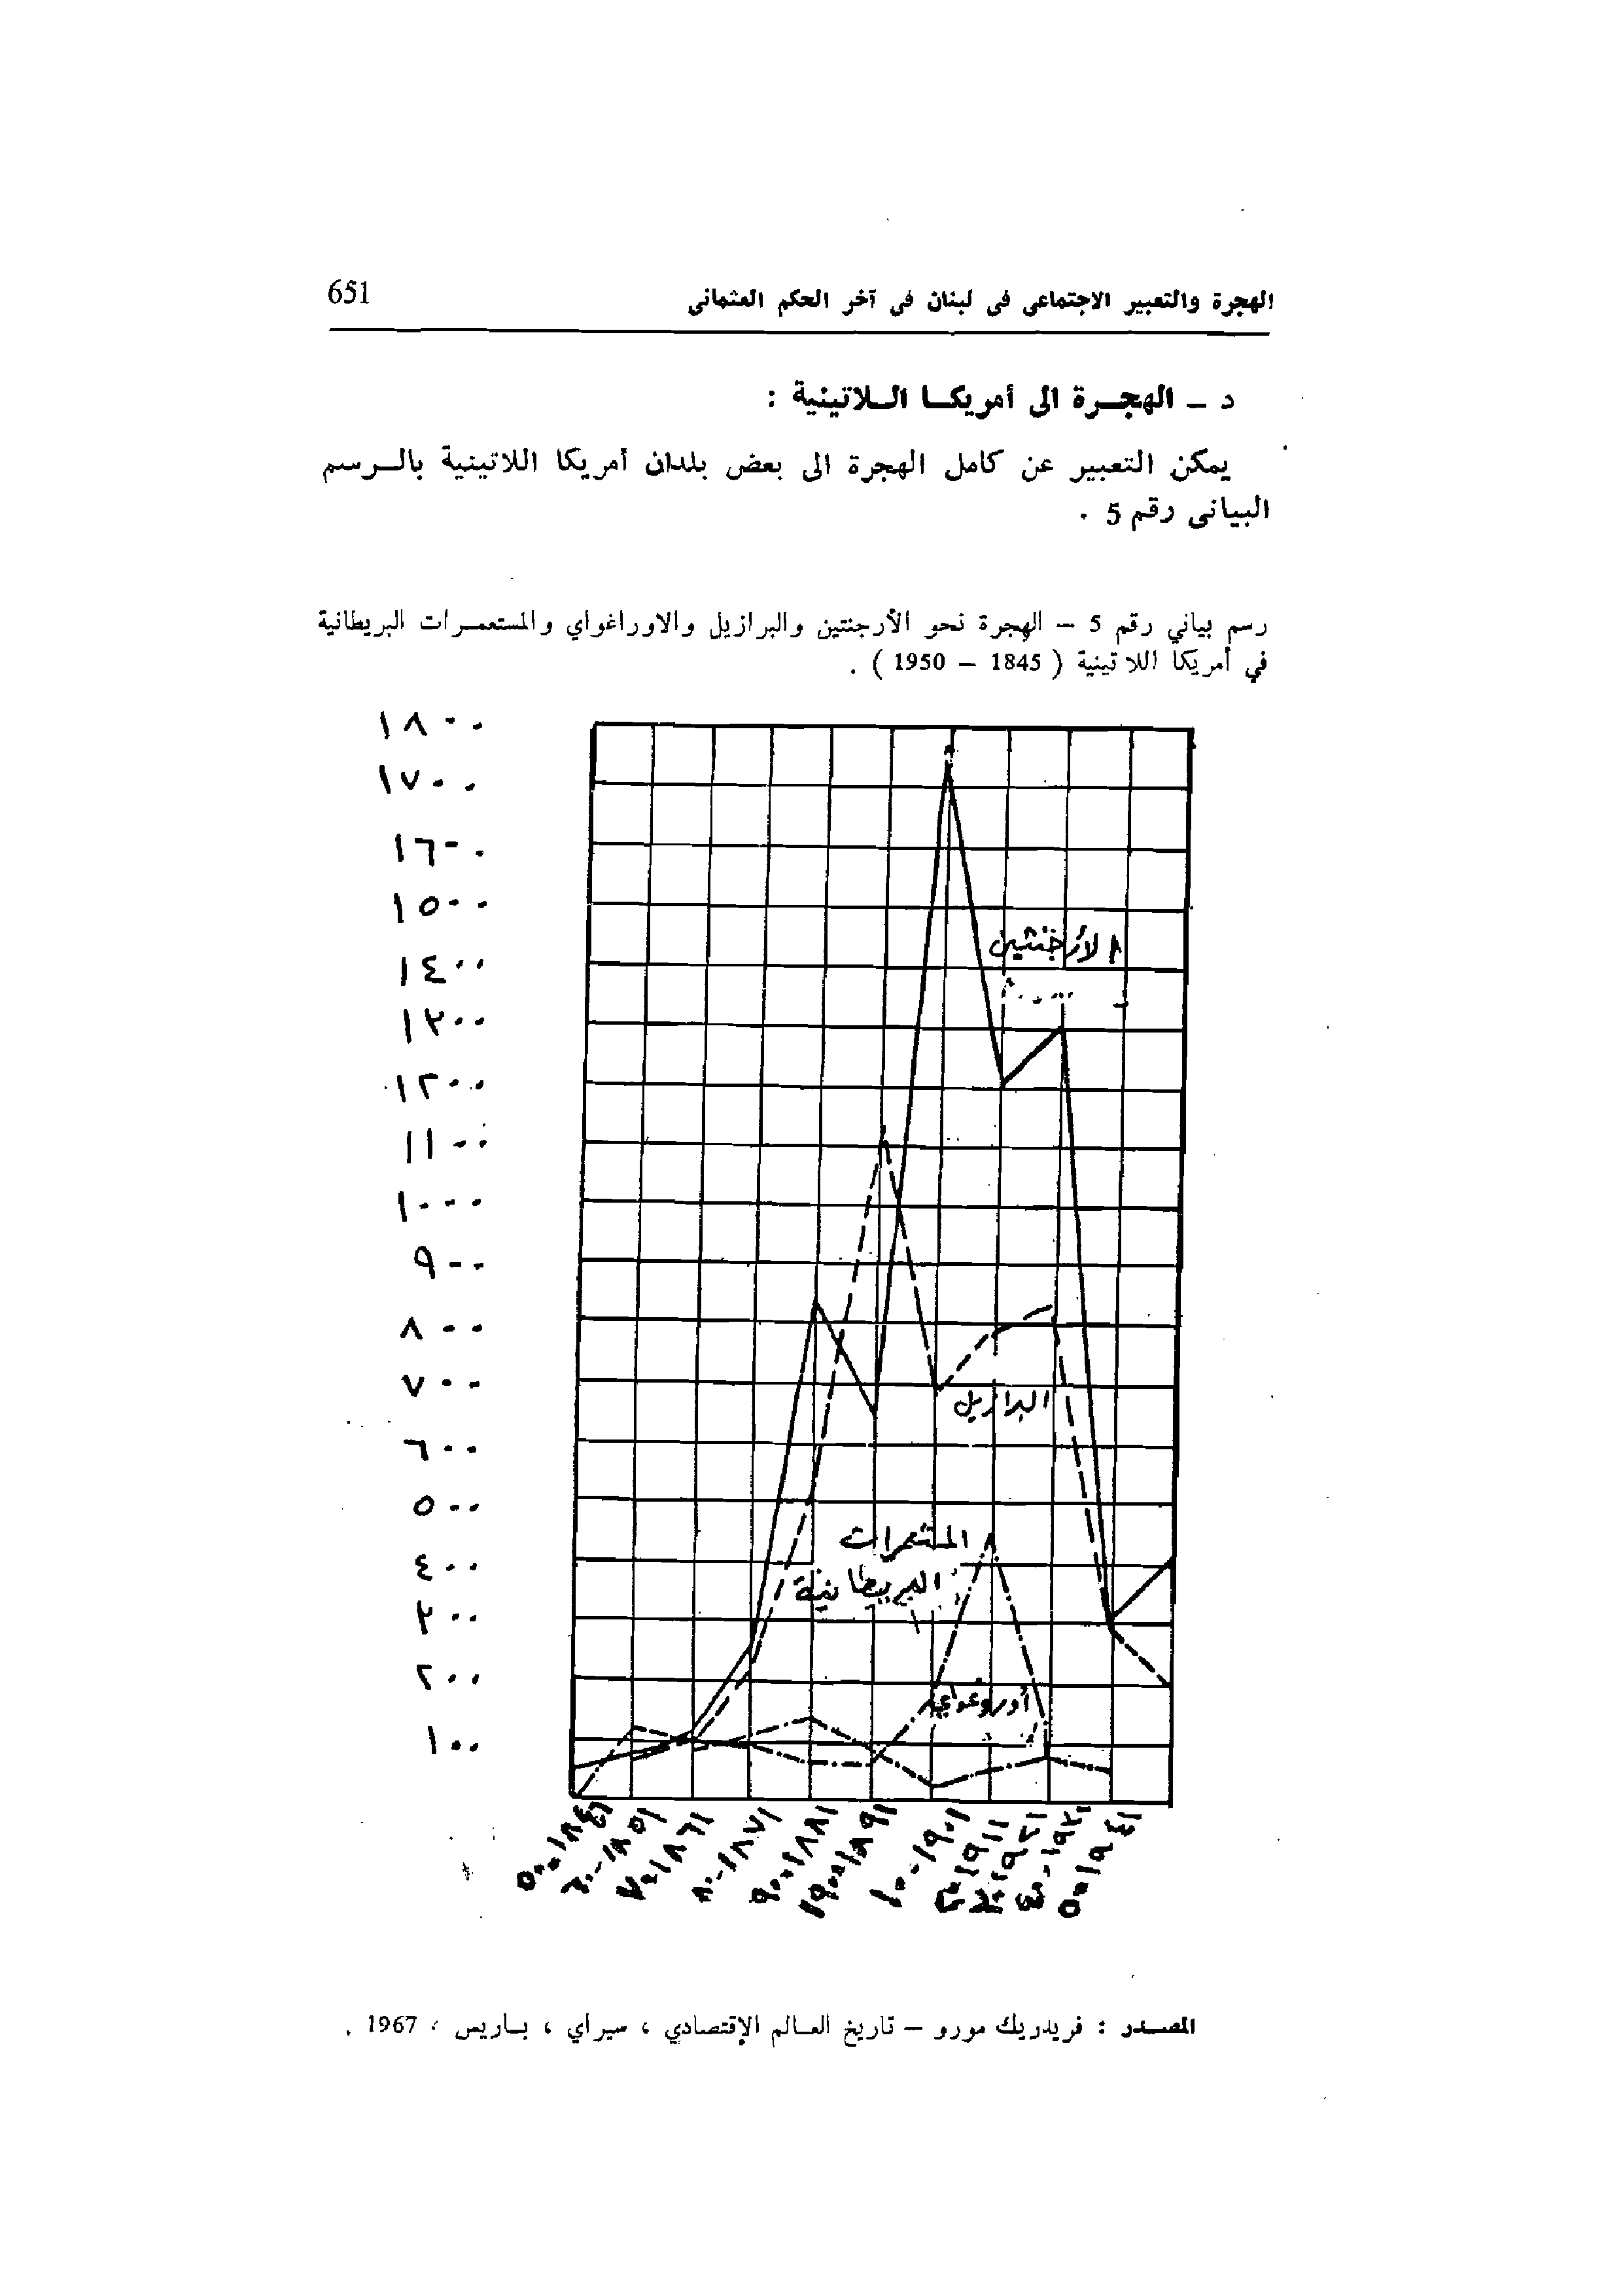 الهجرة والتعبير الاجتماعى فى لبنان فى آخر الحكم العثمانى 651
د – الهجرة الى أمريكا اللاتينية :
يمكن التعبير عن كامل الهجرة الى بعض بلدان أمريكا اللاتينية بالرسم
البيانى رقم 5 .
رسم بياني رقم 5 – الهجرة نحو الأرجنتين والبرازيل والاوراغواي والمستعمرات البريطانية
في أمريكا اللاتينية ( 1845 – 1950 ) .
١٨٠٠
١٧٠٠
١٦٠٠
١٥٠٠
١٤٠٠
١٣٠٠
١٢٠٠
١١٠٠
١٠٠٠
٩٠٠
٨٠٠
٧٠٠
٦٠٠
٥٠٠
٤٠٠
٣٠٠
٢٠٠
١٠٠
الأرجنتين
البرازيل
البريطانية
أوروغواي
١٨٤١-٥٠
١٨٥١-٦٠
١٨٦١-٧٠
١٨٧١-٨٠
١٨٨١-٩٠
١٨٩١-١٩٠٠
١٩٠١-١٠
المصدر : فريدريك مورو – تاريخ العالم الإقتصادي ، سيراي ، باريس ، 1967 .